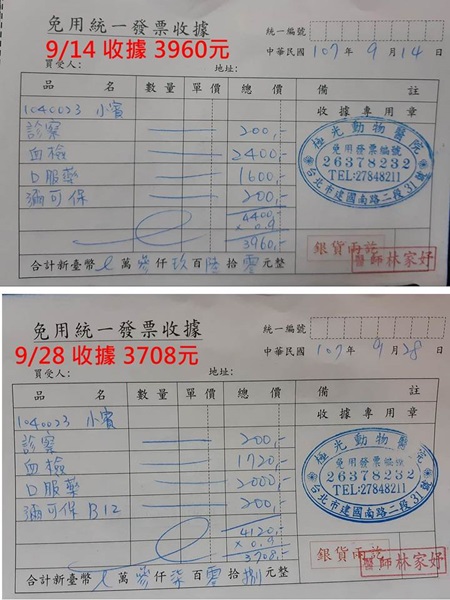 免用統一發票收據
9/14 收據 3960元
統一編號
中華民國 107 年 9 月 14 日
買受人： 地址：
品 名 數量 單價 總價 備 註
收據專用章
1040023 小賓
診察 200,-
血檢 2400,-
口服藥 1600,-
彌可保 200,-
4400,-
x 0.9
3960,-
極光動物醫院
免用發票編號
26378232
TEL:27848211
台北市建國南路二段31號
銀貨兩訖
醫師林家妤
合計新臺幣 萬參仟玖百陸拾零元整
免用統一發票收據
9/28 收據 3708元
統一編號
中華民國 107 年 9 月 28 日
買受人： 地址：
品 名 數量 單價 總價 備 註
收據專用章
1040023 小賓
診察 200,-
血檢 1720,-
口服藥 2000,-
彌可保 B12 200,-
4120,-
x 0.9
3708,-
極光動物醫院
免用發票編號
26378232
TEL:27848211
台北市建國南路二段31號
銀貨兩訖
醫師林家妤
合計新臺幣 萬參仟柒百零拾捌元整